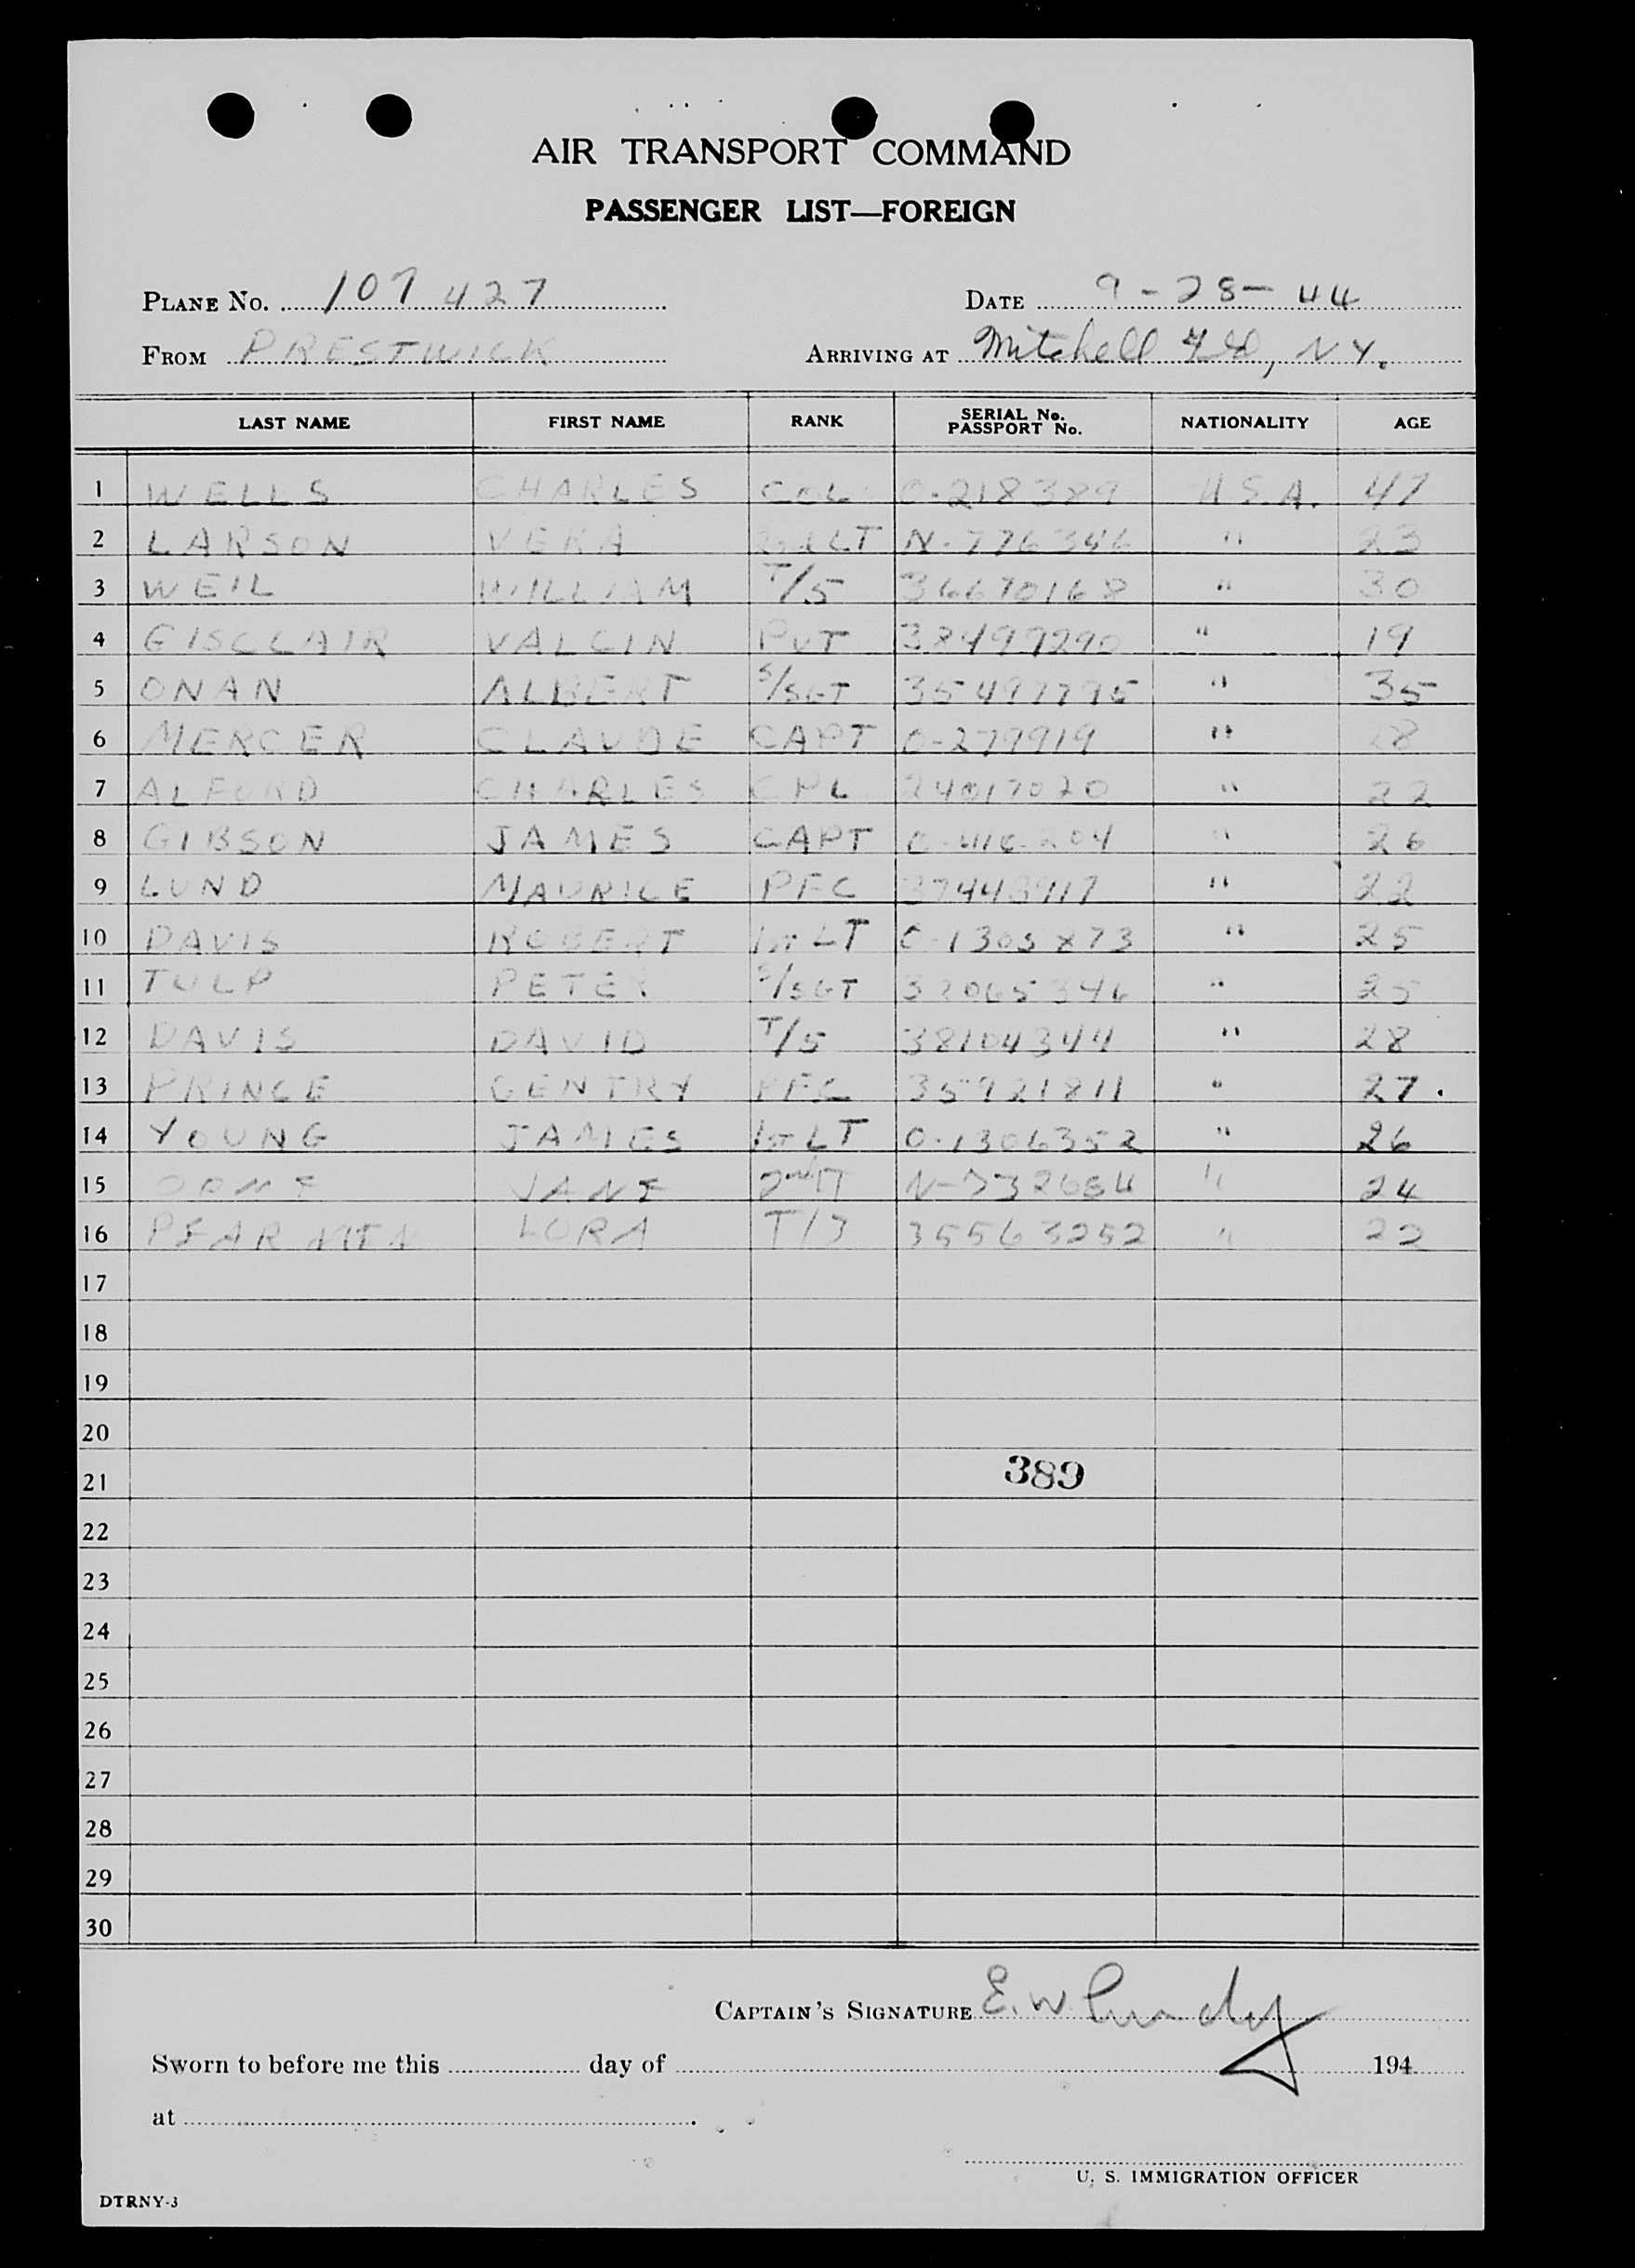 AIR TRANSPORT COMMAND
PASSENGER LIST—FOREIGN
PLANE No. 107 427 DATE 9-28-44
FROM PRESTWICK ARRIVING AT Mitchell Fld, N.Y.
LAST NAME FIRST NAME RANK SERIAL No. PASSPORT No. NATIONALITY AGE
1 WELLS CHARLES COL O-218389 U.S.A. 47
2 LARSON VERA 2nd LT N-776346 " 23
3 WEIL WILLIAM T/5 36670168 " 30
4 GISCLAIR VALCIN PVT 38499290 " 19
5 ONAN ALBERT S/SGT 35497795 " 35
6 MERCER CLAUDE CAPT O-279919 " 28
7 ALFORD CHARLES CPL 24017020 " 22
8 GIBSON JAMES CAPT " 26
9 LUND MAURICE PFC 37443917 " 22
10 DAVIS ROBERT 1ST LT O-1305873 " 25
11 TULP PETER S/SGT 32065346 " 25
12 DAVIS DAVID T/5 38104344 " 28
13 PRINCE GENTRY PFC 35921811 " 27.
14 YOUNG JAMES 1ST LT O-1306352 " 26
15 JANE 2nd LT " 24
16 LORA T/3 35563252 " 22
17
18
19
20
21 389
22
23
24
25
26
27
28
29
30
CAPTAIN'S SIGNATURE E. W.
Sworn to before me this day of 194
at
U. S. IMMIGRATION OFFICER
DTRNY-3